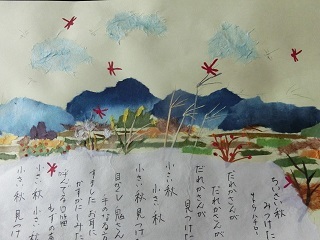 ちいさい秋
みつけた
サトウハチロー
だれかさんが
だれかさんが
だれかさんが
見つけた
小さい秋
小さい秋
小さい秋 見つけ
目かくし 鬼さん
手のなる方
すました お耳に
かすかにしみた
呼んでる口笛
もずの
小さい秋 小さ
小さい秋 見つけ